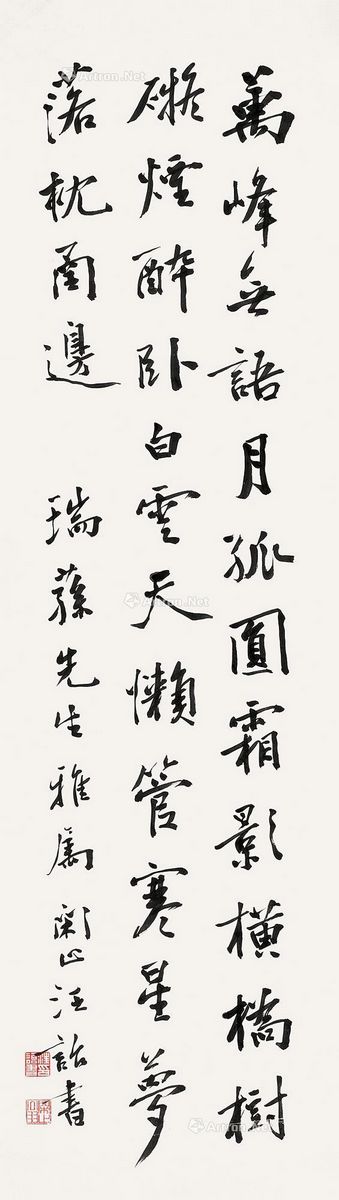 萬峰無語月孤圓霜影橫橋樹
礙煙醉卧白雲天懶管寒星夢
落枕圅邊
瑞蓀先生雅屬 山汪詒書
Artron.Net
Artron.Net
Artron.Net